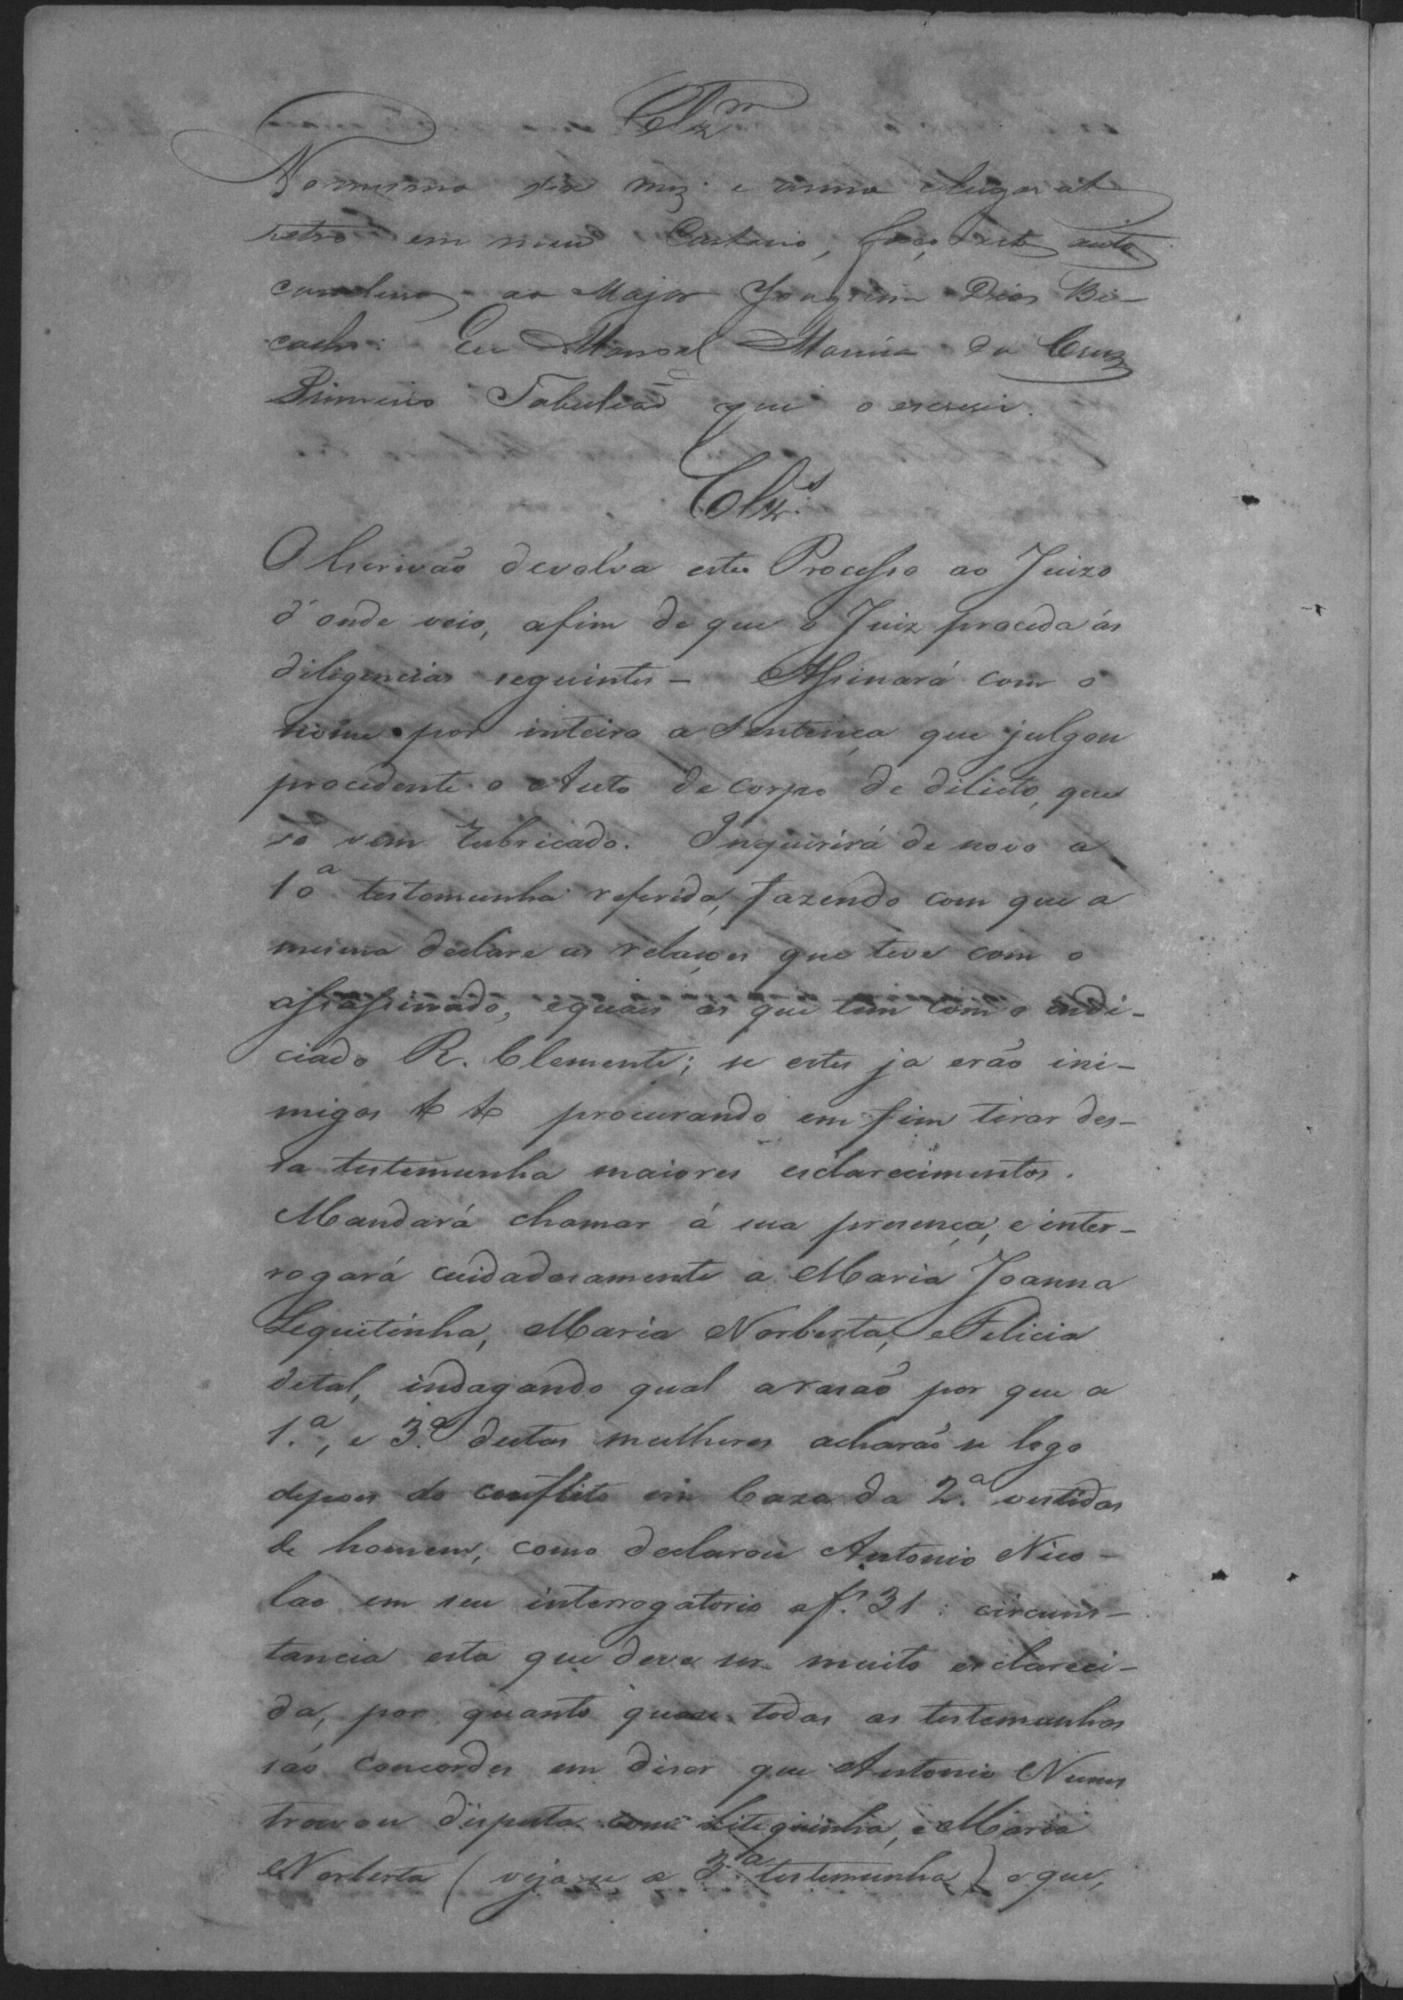 Clz.m
No mesmo dia mez e anno e lugar at
retro em meu Cartorio, faço este auto
concluso ao Major Joaquim Dias Bi-
calho. Eu Manoel Maria da Cruz
Primeiro Tabelião que o escrevi.
Clz.s
O Escrivão devolva este Processo ao Juizo
d'onde veio, afim de que o Juiz proceda ás
diligencias seguintes - Assinará com o
nome por inteiro a Sentença que julgou
procedente o Auto de corpo de dilicto, que
só vem rubricado. Inquirirá de novo a
10ª testemunha referida, fazendo com que a
mesma declare as relações que teve com o
assassinado, e quaes as que tem com o endi-
ciado R. Clemente; se estes ja erão ini-
migos & & procurando em fim tirar des-
sa testemunha maiores esclarecimentos.
Mandará chamar á sua presença, e inter-
rogará cuidadosamente a Maria Joanna
Sequitinha, Maria Norberta, e Felicia
de tal, indagando qual a rasão por que a
1.ª, e 3.ª destas mulheres acharão se logo
depois do conflito em Caza da 2.ª vestidas
de homem, como declarou Antonio Nico-
lao em seu interrogatorio a f. 31: circuns-
tancia esta que deve ser muito esclareci-
da, por quanto quase todas as testemunhas
são concordes em diser que Antonio Nunes
travou disputa com e Maria
Norberta (veja-se a 3.ª testemunha) o que,